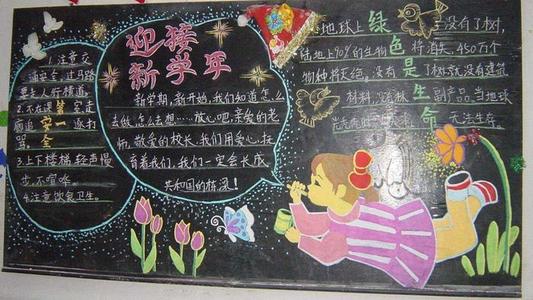 1.注意交
通安全,过马路
要走人行横道。
2.不在课室走
安一
全
骂,
3.上下楼梯轻声慢
步,不喧哗。
4.注意饮食卫生。
迎接
新学年
新学期,新开始,我们知道怎么
去做,怎么去想……放心吧,亲爱的老
师,敬爱的校长,我们用爱心,抚
育着我们,我们一定会长成
共和国的栋梁!
绿色是生命
地球上没有了树,
陆地上90%的生物将消失,450万个
物种将灭绝。没有了树就没有建筑
材料,副产品,当地球
无法生存。